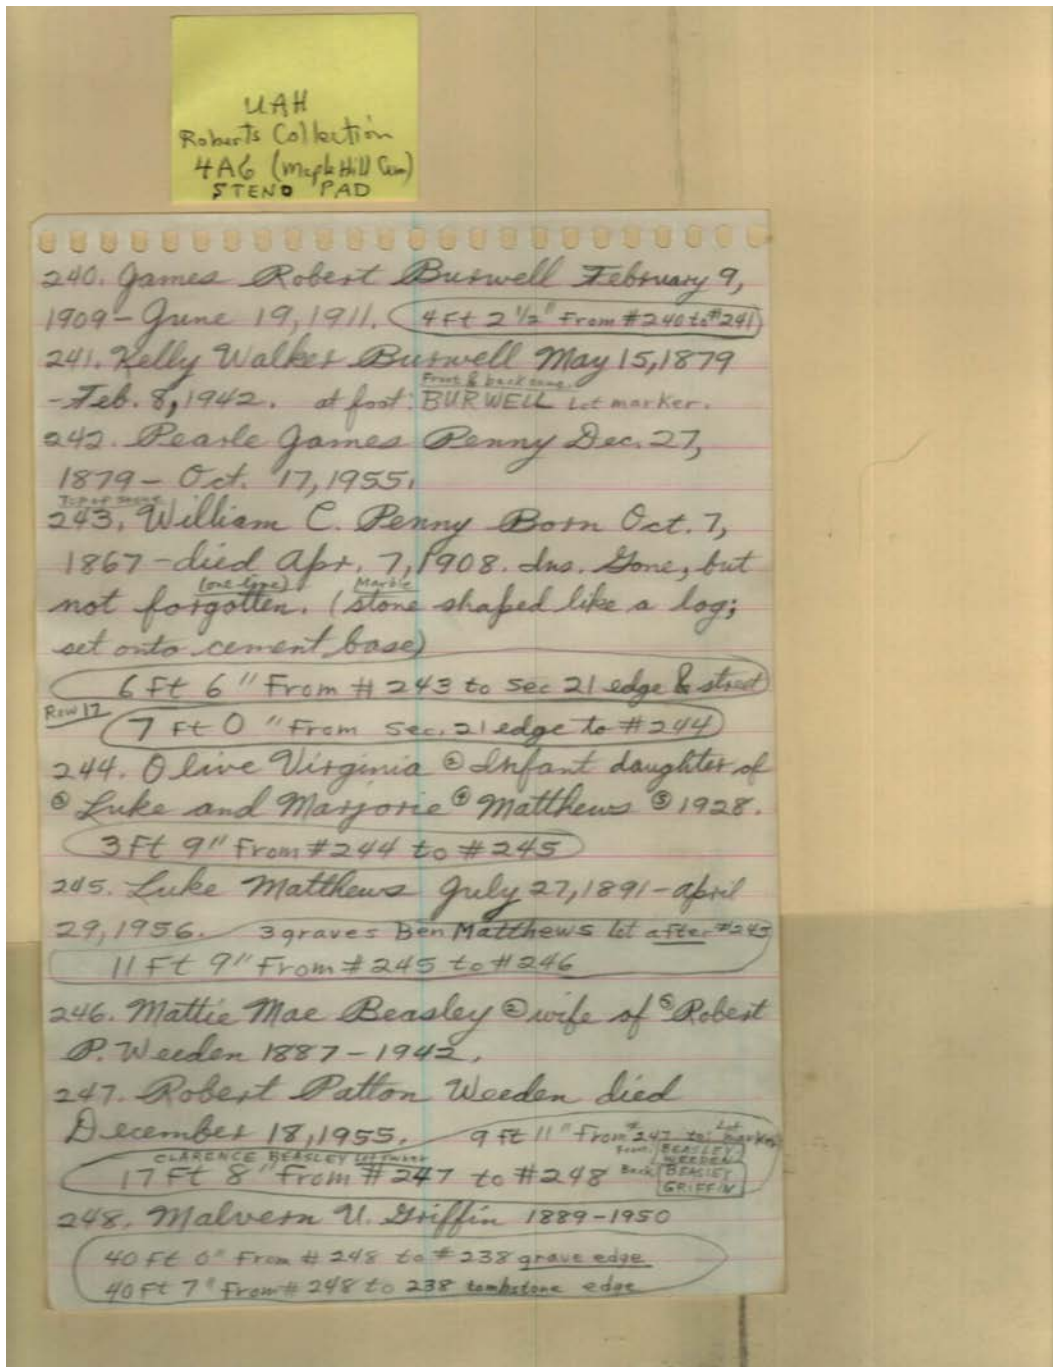 UAH
Roberts Collection
4A6 (Maple Hill Cem)
STENO PAD
240. James Robert Burwell February 9,
1909 – June 19, 1911. 4 Ft 2 1/2" From #240 to #241
241. Kelly Walker Burwell May 15, 1879
Front & back same.
– Feb. 8, 1942. at foot: BURWELL Lot marker.
242. Pearle James Penny Dec. 27,
1879 – Oct. 17, 1955.
Top of stone
243. William C. Penny Born Oct. 7,
1867 – died Apr. 7, 1908. Ins. Gone, but
(one line) Marble
not forgotten. (stone shaped like a log;
set onto cement base)
6 Ft 6" From #243 to Sec 21 edge & street
Row 17
7 Ft 0" From Sec. 21 edge to #244
244. Olive Virginia ② Infant daughter of
③ Luke and Marjorie ④ Matthews ⑤ 1928.
3 Ft 9" From #244 to #245
245. Luke Matthews July 27, 1891 – April
29, 1956. 3 graves Ben Matthews Lot after #245
11 Ft 9" From #245 to #246
246. Mattie Mae Beasley ② wife of ③ Robert
P. Weeden 1887 – 1942.
247. Robert Patton Weeden died
December 18, 1955. 9 ft 11" From #247 to: Lot marker
Front: BEASLEY
WEEDEN
CLARENCE BEASLEY Lot owner
17 Ft 8" From #247 to #248 Back BEASLEY
GRIFFIN
248. Malvern U. Griffin 1889–1950
40 Ft 0" From #248 to #238 grave edge
40 Ft 7" From #248 to 238 tombstone edge